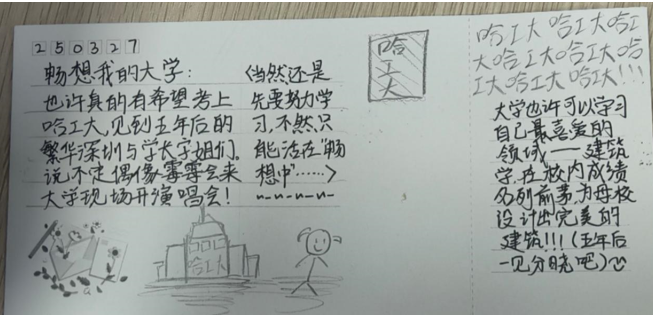 250327
畅想我的大学：
也许真的有希望考上
哈工大,见到五年后的
繁华深圳与学长学姐们。
说不定偶像霉霉会来
大学现场开演唱会！
（当然还是
先要努力学
习,不然只
能活在“畅
想中”……）
哈
工
大
哈工大
哈工大哈工大哈工
大哈工大哈工大哈
工大哈工大哈工大!!!
大学也许可以学习
自己最喜爱的
领域——建筑
学,在校内成绩
名列前茅,为母校
设计出完美的
建筑!!!(五年后
一见分晓吧)